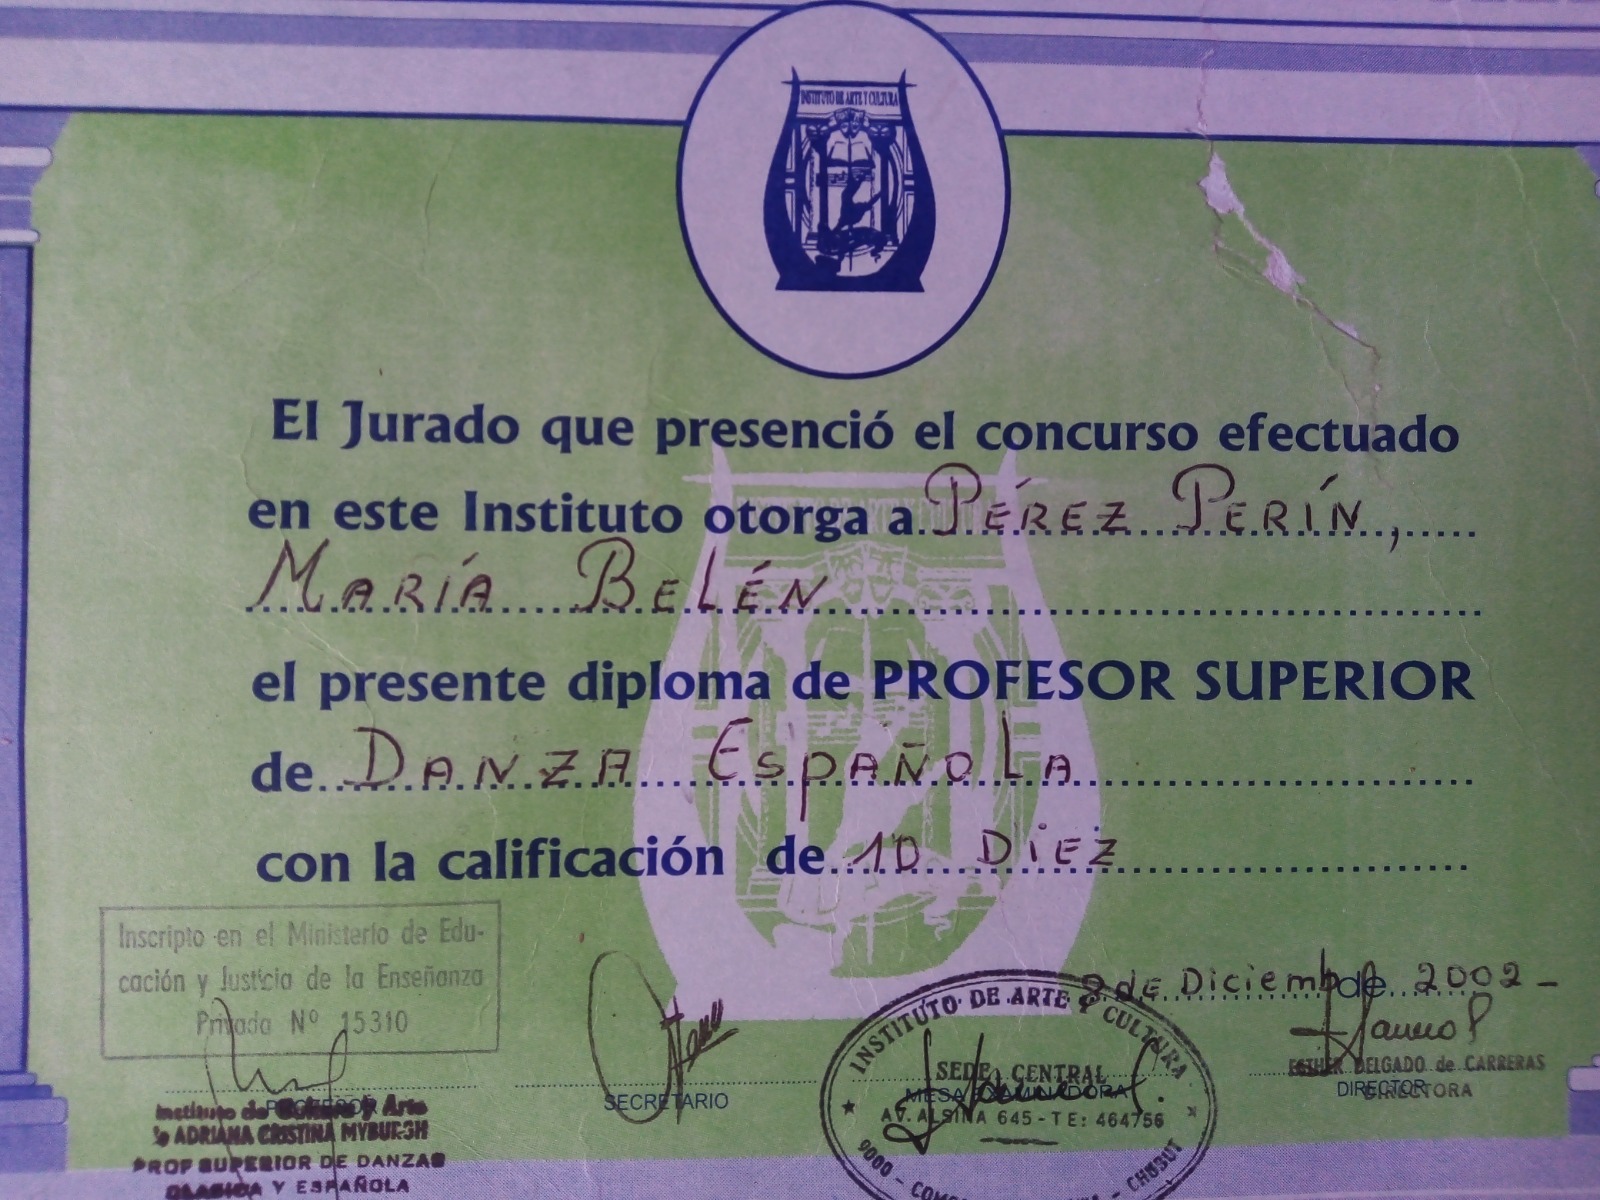 INSTITUTO DE ARTE Y CULTURA
El Jurado que presenció el concurso efectuado
en este Instituto otorga a Pérez Perín,
María Belén
el presente diploma de PROFESOR SUPERIOR
de Danza Española
con la calificación de 10 Diez
Inscripto en el Ministerio de Edu-
cación y Justicia de la Enseñanza
Privada Nº 15310
de Diciemb de 2002-
PROFESOR
Instituto de Cultura y Arte
ADRIANA CRISTINA MYBURGH
PROF SUPERIOR DE DANZAS
CLASICA Y ESPAÑOLA
SECRETARIO
INSTITUTO DE ARTE Y CULTURA
SEDE CENTRAL
MESA EXAMINADORA
AV. ALSINA 645 - TE: 464756
9000 - CHUBUT
ESTHER DELGADO de CARRERAS
DIRECTOR
DIRECTORA